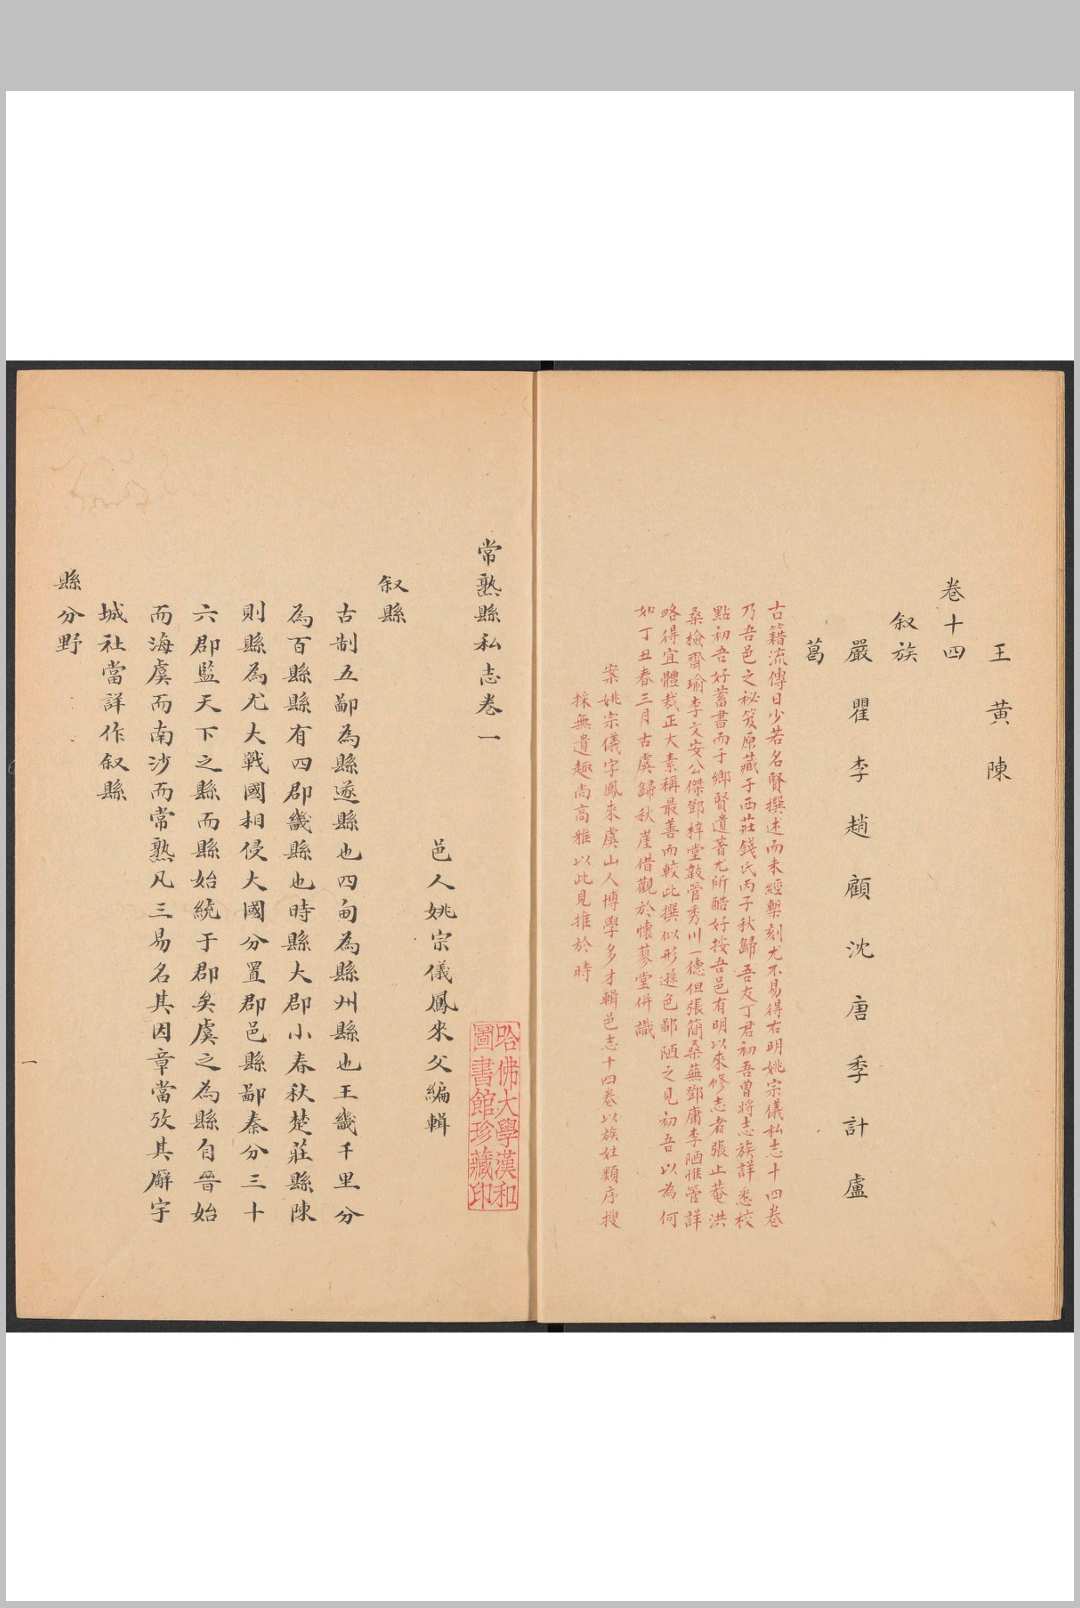 王 黄 陳
卷十四
叙族
嚴 瞿 李 趙 顧 沈 唐 季 計 盧
葛
古籍流傳日少若名賢撰述而未經槧刻尤不易得右明姚宗儀私志十四卷
乃吾邑之秘笈原藏于西莊錢氏丙子秋歸吾友丁君初吾曾將志族詳悉校
點初吾好蓄書而于鄉賢遺著尤所酷好按吾邑有明以來修志者張止菴洪
桑檢齋瑜李文安公傑鄧梓堂韍管秀川一德但張簡桑蕪鄧庸李陋惟管詳
略得宜體裁正大素稱最善而較此撰似形遜色鄙陋之見初吾以為何
如丁丑春三月古虞歸秋崖借觀於懷蓼堂併識
案姚宗儀字鳳來虞山人博學多才輯邑志十四卷以族姓類序搜
採無遺趣尚高雅以此見推於時
常熟縣私志卷一
邑人姚宗儀鳳來父編輯
哈佛大學漢和
圖書館珍藏印
叙縣
古制五鄙為縣遂縣也四甸為縣州縣也王畿千里分
為百縣縣有四郡畿縣也時縣大郡小春秋楚莊縣陳
則縣為尤大戰國相侵大國分置郡邑縣鄙秦分三十
六郡監天下之縣而縣始統于郡矣虞之為縣自晉始
而海虞而南沙而常熟凡三易名其因章當攷其廨宇
城社當詳作叙縣
縣分野
一